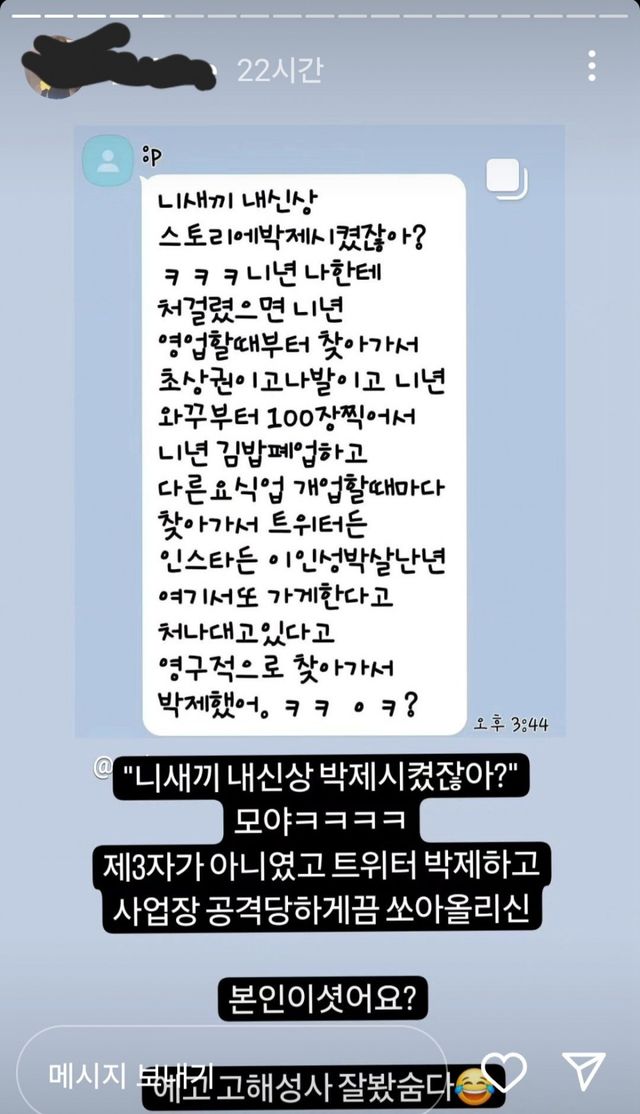 22시간
:P
니새끼 내신상
스토리에박제시켰잖아?
ㅋㅋㅋ니년 나한테
처걸렸으면 니년
영업할때부터 찾아가서
초상권이고나발이고 니년
와꾸부터 100장찍어서
니년 김밥폐업하고
다른요식업 개업할때마다
찾아가서 트위터든
인스타든 이인성박살난년
여기서또 가게한다고
처나대고있다고
영구적으로 찾아가서
박제했어. ㅋㅋ ㅇㅋ?
오후 3:44
@
"니새끼 내신상 박제시켰잖아?"
모야ㅋㅋㅋㅋ
제3자가 아니였고 트위터 박제하고
사업장 공격당하게끔 쏘아올리신
본인이셧어요?
메시지 보내기
에고 고해성사 잘봤숨다😂